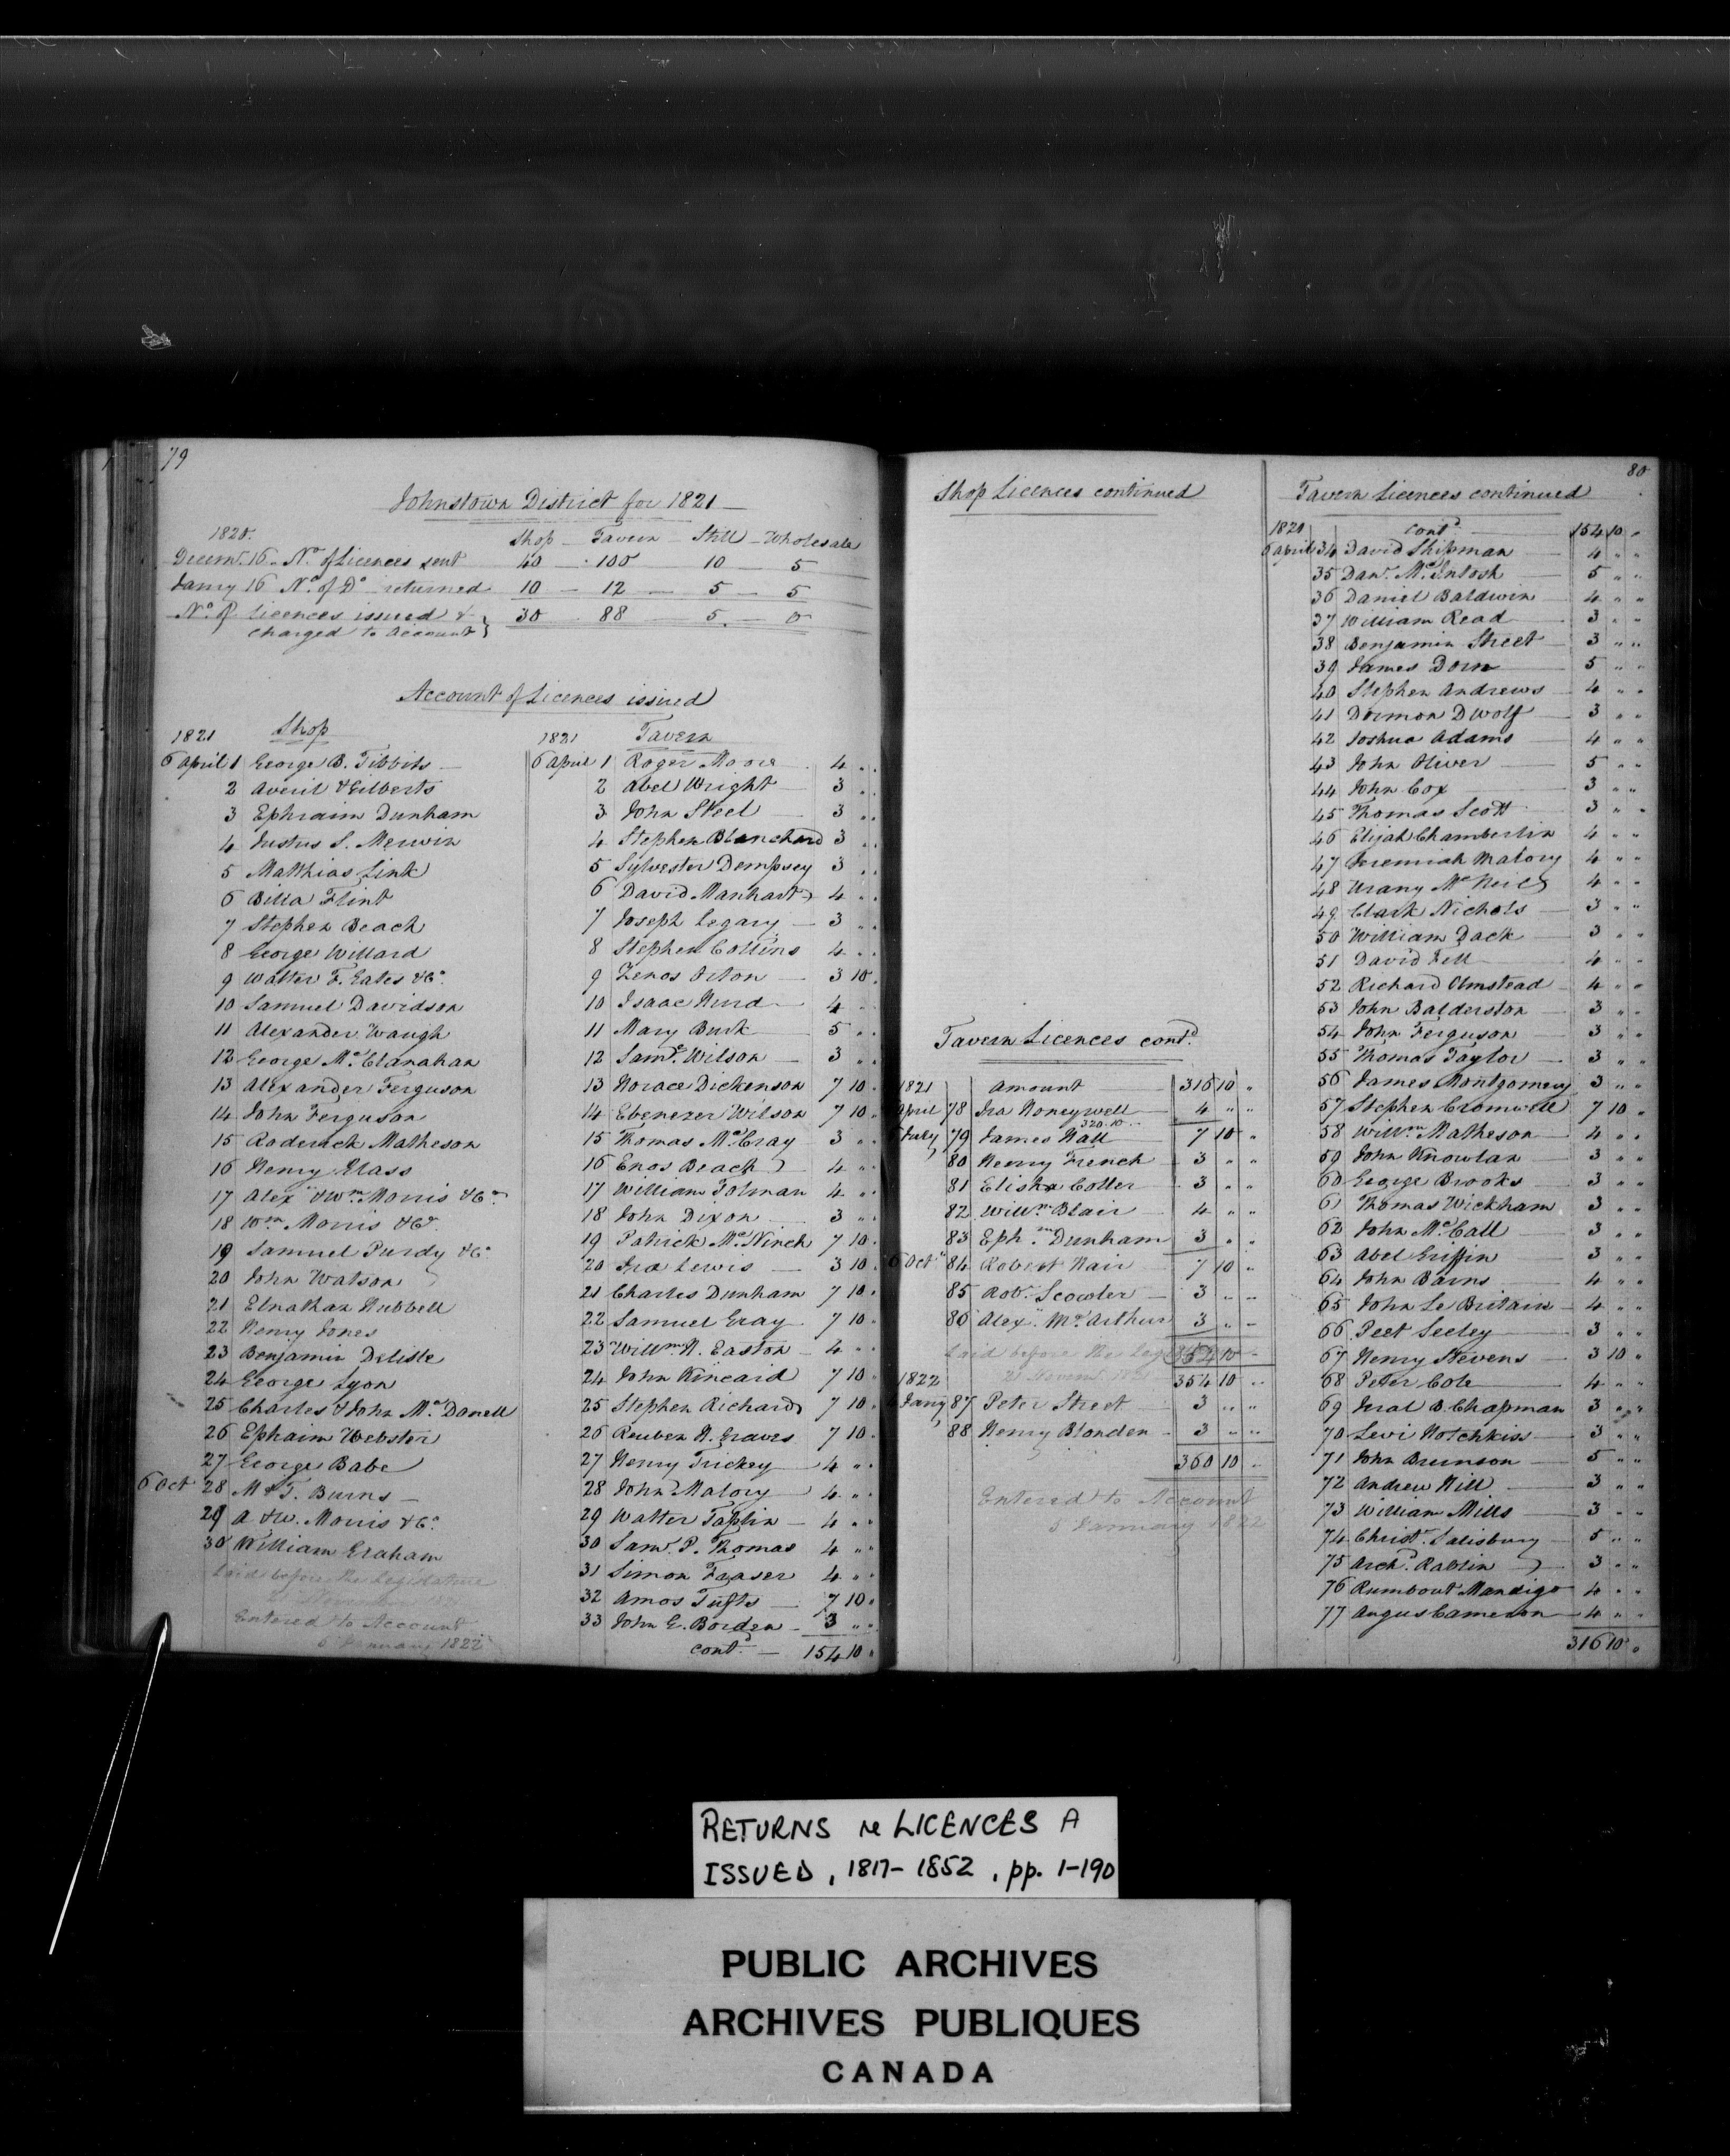 79
Johnstown District for 1821
1820. Shop Tavern Still Wholesale
Decemr. 16 No. of Licences sent 40 100 10 5
Jany 16 No. of Do returned 10 12 5 5
No. of Licences issued & charged to account } 30 88 5 0
Account of Licences issued
1821 Shop
6 April 1 George B. Tibbits
2 Averil & Gilberts
3 Ephraim Dunham
4 Justus S. Merwin
5 Matthias Link
6 Billa Flint
7 Stephen Beach
8 George Willard
9 Walter F. Gates & Co.
10 Samuel Davidson
11 Alexander Waugh
12 George McClanahan
13 Alexander Ferguson
14 John Ferguson
15 Roderick Matheson
16 Henry Glass
17 Alexr & Wm Morris & Co.
18 Wm Morris & Co.
19 Samuel Purdy & Co.
20 John Watson
21 Elnathan Hubbell
22 Henry Jones
23 Benjamin Delisle
24 George Lyon
25 Charles & John McDonell
26 Ephraim Webster
27 George Babe
6 Oct 28 M & T. Burns
29 A & W. Morris & Co.
30 William Graham
Laid before the Legislature
Entered to Account
5 January 1822
1821 Tavern
6 April 1 Roger Moore 4 " "
2 Abel Wright 3 " "
3 John Steel 3 " "
4 Stephen Blanchard 3 " "
5 Sylvester Dempsey 3 " "
6 David Manhart 4 " "
7 Joseph Legary 3 " "
8 Stephen Collins 4 " "
9 Zenos Orton 3 10 "
10 Isaac Hurd 4 " "
11 Mary Burk 5 " "
12 Saml. Wilson 3 " "
13 Horace Dickenson 7 10 "
14 Ebenezer Wilson 7 10 "
15 Thomas McCray 3 " "
16 Enos Beach 4 " "
17 William Tolman 4 " "
18 John Dixon 3 " "
19 Patrick McNinch 7 10 "
20 Ira Lewis 3 10 "
21 Charles Dunham 7 10 "
22 Samuel Gray 7 10 "
23 Willm H. Easton 4 " "
24 John Kincaid 7 10 "
25 Stephen Richards 7 10 "
26 Reuben N. Graves 7 10 "
27 Henry Trickey 4 " "
28 John Malory 4 " "
29 Walter Taplin 4 " "
30 Saml. P. Thomas 4 " "
31 Simon Fraser 4 " "
32 Amos Tufts 7 10 "
33 John G. Borden 3 " "
contd. 154 10 "
Shop Licences continued
Tavern Licences contd.
1821 Amount 316 10 "
April 78 Ira Honeywell 4 " "
320.10 "
July 79 James Hall 7 10 "
80 Henry French 3 " "
81 Elisha Coller 3 " "
82 Willm Blair 4 " "
83 Ephm. Dunham 3 " "
6 Oct 84 Robert Nair 7 10 "
85 Robt. Scowler 3 " "
86 Alexr McArthur 3 " "
Laid before the Leg 354 10 "
1822 354 10 "
Jany 87 Peter Street 3 " "
88 Henry Blonden 3 " "
360 10 "
Entered to Account
5 January 1822
80
Tavern Licences continued
1821 contd 154 10 "
6 April 34 David Shipman 4 " "
35 Danl. McIntosh 5 " "
36 Daniel Baldwin 4 " "
37 William Read 3 " "
38 Benjamin Street 3 " "
39 James Dorn 5 " "
40 Stephen Andrews 4 " "
41 Dormon Dwolf 3 " "
42 Joshua Adams 4 " "
43 John Oliver 5 " "
44 John Cox 3 " "
45 Thomas Scott 3 " "
46 Elijah Chamberlin 4 " "
47 Jeremiah Malory 4 " "
48 Urany McNeil 4 " "
49 Clark Nichols 3 " "
50 William Dack 3 " "
51 David Fell 4 " "
52 Richard Olmstead 4 " "
53 John Balderston 3 " "
54 John Ferguson 3 " "
55 Thomas Taylor 3 " "
56 James Montgomery 3 " "
57 Stephen Cromwell 7 10 "
58 Willm Matheson 4 " "
59 John Knowlan 3 " "
60 George Brooks 3 " "
61 Thomas Wickham 3 " "
62 John McCall 3 " "
63 Abel Griffin 3 " "
64 John Barns 4 " "
65 John Le Britain 4 " "
66 Peet Seeley 3 " "
67 Henry Stevens 3 10 "
68 Peter Cole 4 " "
69 Iral B. Chapman 3 " "
70 Levi Hotchkiss 3 " "
71 John Brunson 5 " "
72 Andrew Hill 3 " "
73 William Mills 3 " "
74 Christ. Salisbury 5 " "
75 Archd. Rablin 3 " "
76 Rumbout Mandigo 4 " "
77 Angus Cameron 4 " "
316 10 "
RETURNS re LICENCES A
ISSUED, 1817-1852, pp. 1-190
PUBLIC ARCHIVES
ARCHIVES PUBLIQUES
CANADA